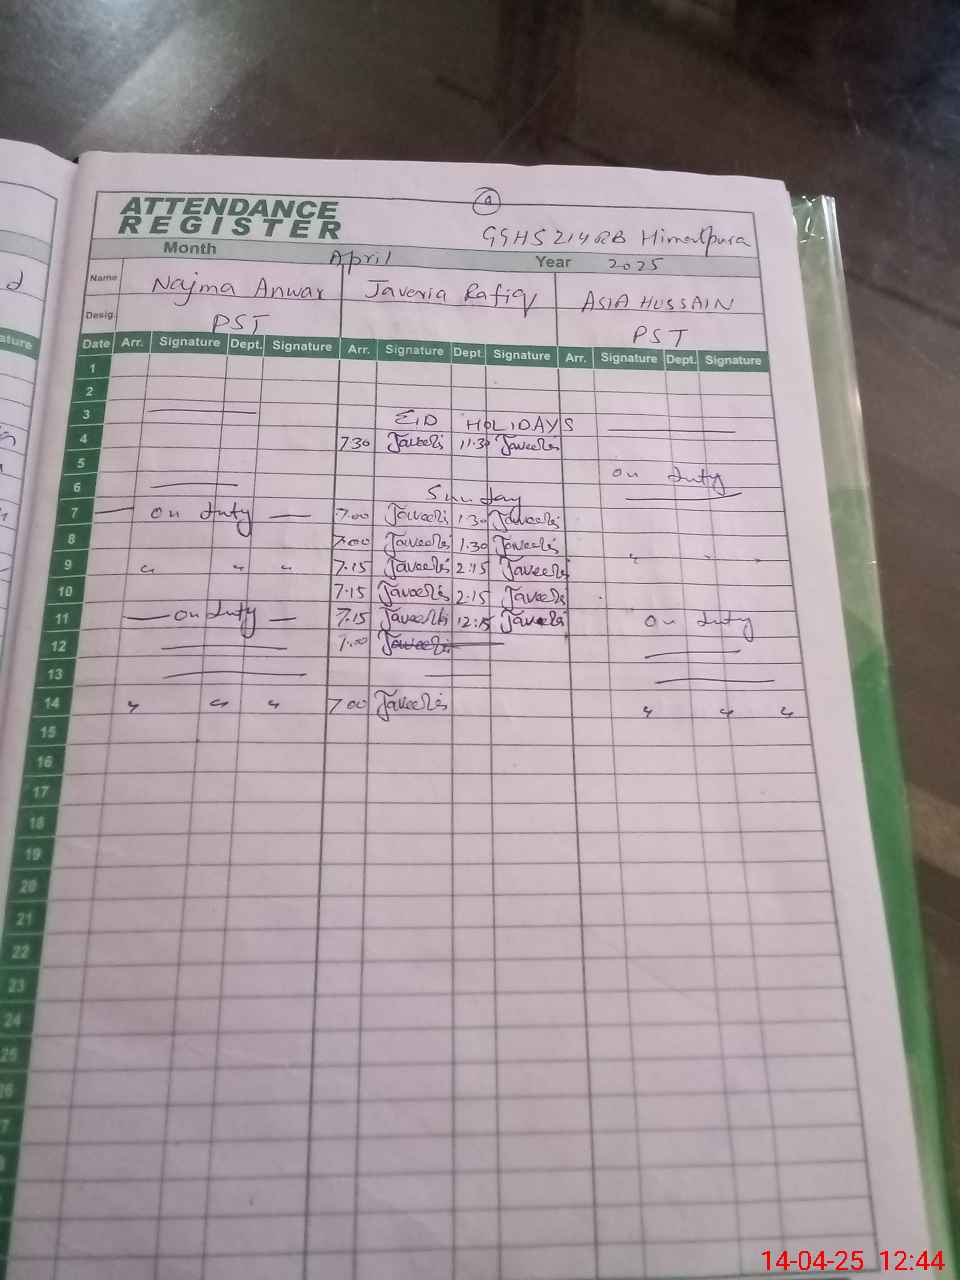 4
ATTENDANCE
REGISTER
GGHS 214 RB Himatpura
Month April Year 2025
Name Najma Anwar Javeria Rafiq ASIA HUSSAIN
Desig. PST PST
Date Arr. Signature Dept. Signature Arr. Signature Dept. Signature Arr. Signature Dept. Signature
1
2
3 EID HOLIDAYS
4 7.30 11.30
5 on duty
6 Sunday
7 on duty 7.00 1.30
8 7.00 1.30 " " "
9 " " " 7.15 2:15
10 7.15 2.15
11 on duty 7.15 12:15 on duty
12 7.00
13
14 " " " 7.00 " " "
15
16
17
18
19
20
21
22
23
24
25
26
7
ature
d
14-04-25 12:44